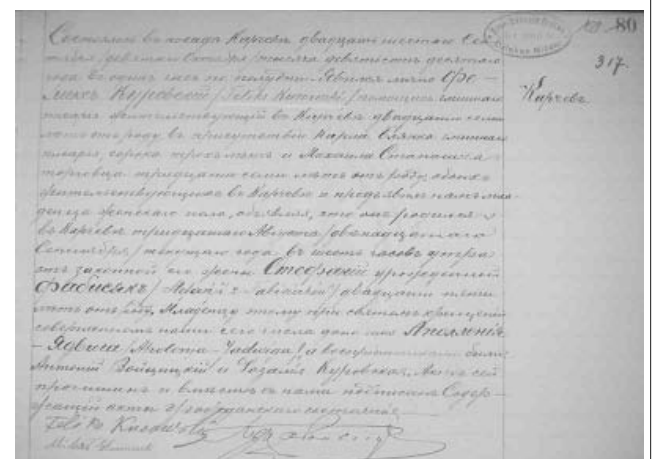 80
317.
Карчевъ
Состоялось въ посадѣ Карчевѣ двадцать шестого Сен-
тября /девятаго Октября/ тысяча девятьсотъ десятаго
года въ часъ по полудни. Явился лично Фе-
ликсъ Куровскій /Feliks Kurowski/ помощникъ гминнаго
писаря жительствующій въ Карчевѣ двадцати семи
лѣтъ отъ роду, въ присутствіи Карла гминнаго
писаря, сорока трехъ лѣтъ и Михаила
торговца тридцати семи лѣтъ отъ роду, обоихъ
жительствующихъ въ Карчевѣ и предъявилъ намъ мла-
денца женскаго пола, объявляя, что онъ родился
въ Карчевѣ тридцатаго Августа /двѣнадцатаго
Сентября/ текущаго года въ шесть часовъ утра
отъ законной его жены Стефаніи урожденной
Фабисякъ двадцати пяти
лѣтъ отъ роду. Младенцу этому при святомъ крещеніи
совершенномъ нами сего числа дано имя Аполлонія
- Ядвига /Apolonia - Jadwiga/ а воспріемниками были
Антоній и Розалія Куровская. Актъ сей
прочитанъ и вмѣстѣ съ нами подписанъ. Содер-
жащій акты гражданскаго состоянія
Feliks Kurowski